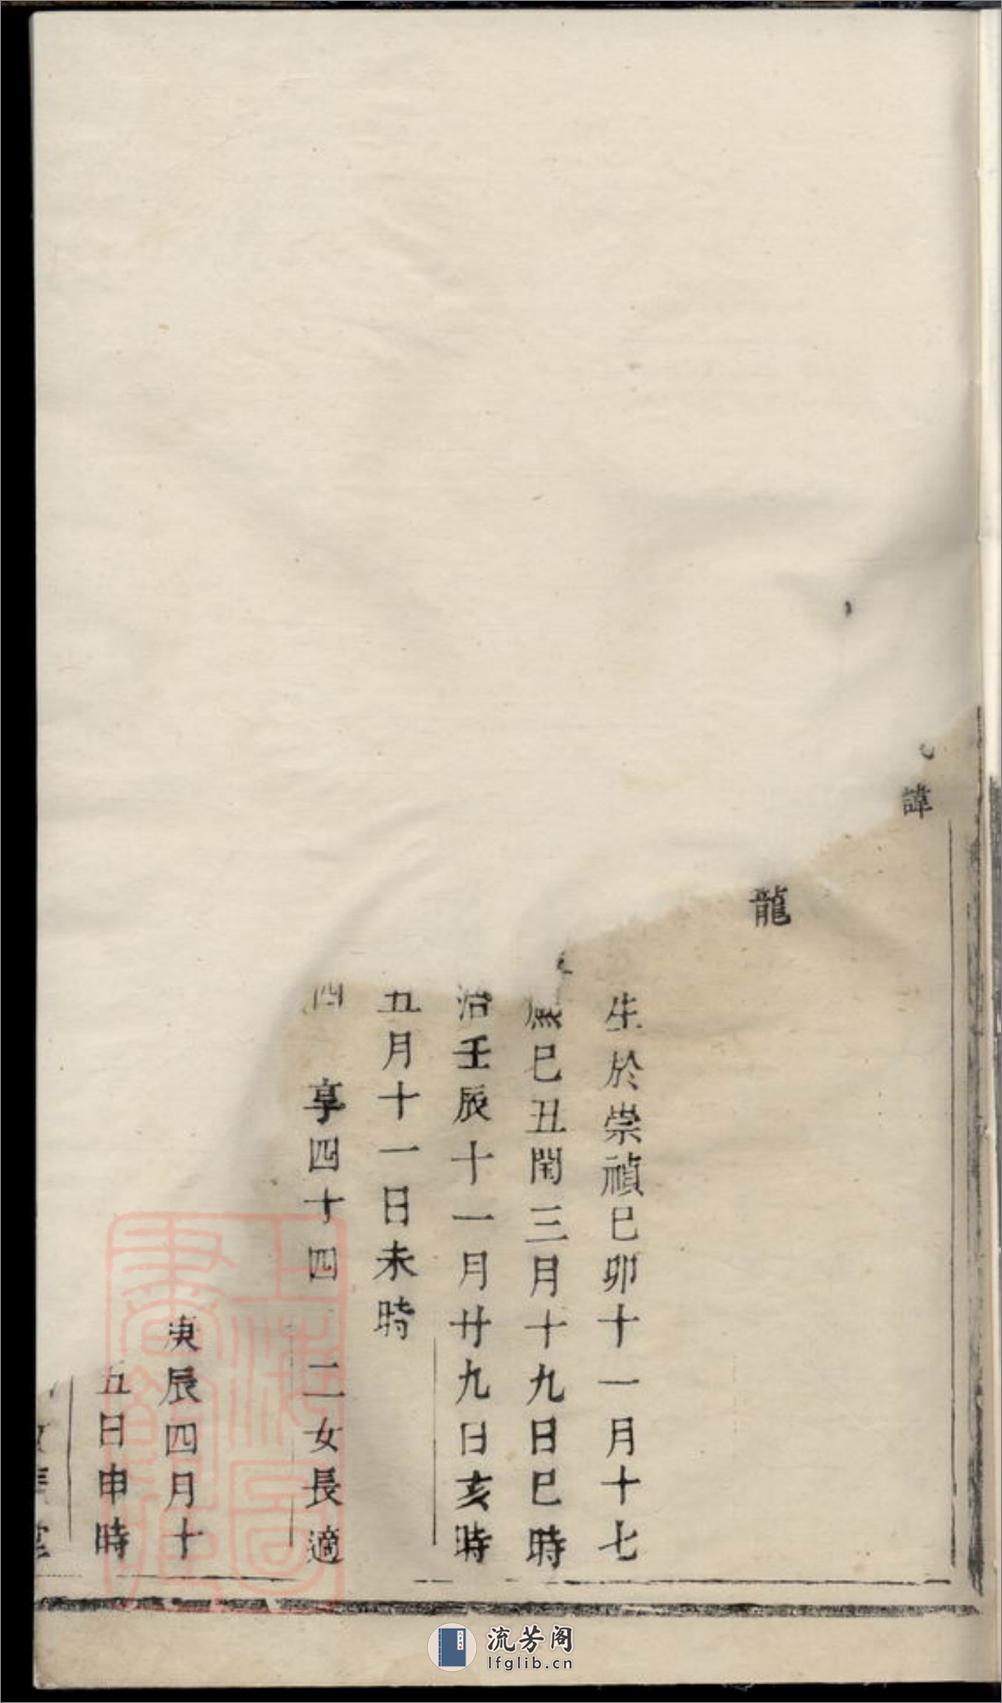 諱
龍
生於崇禎巳卯十一月十七
巳丑閏三月十九日巳時
治壬辰十一月廿九日亥時
五月十一日未時
四 享四十四 二女長適
庚辰四月十
五日申時
上海圖書館藏
流芳阁
lfglib.cn